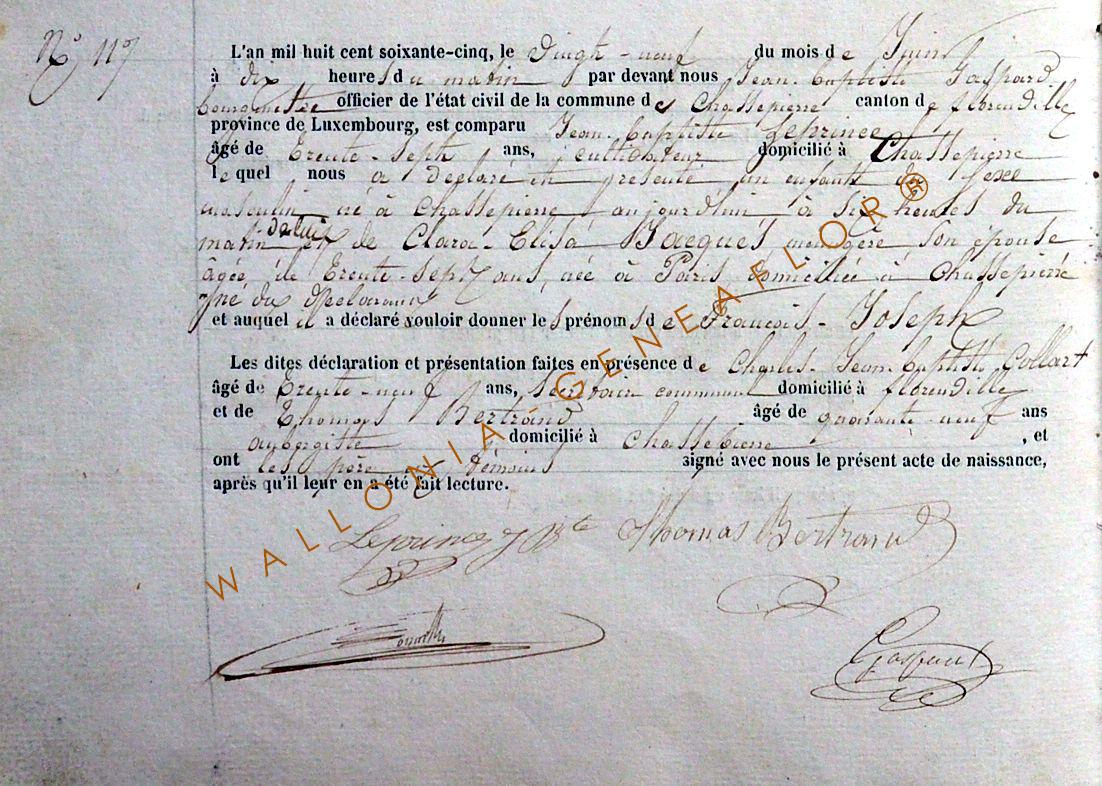 N° 117
L'an mil huit cent soixante-cinq, le vingt-neuf du mois de Juin
à dix heures du matin par devant nous Jean-Baptiste Gaspard
bourgmestre officier de l'état civil de la commune de Chassepierre canton de florenville
province de Luxembourg, est comparu Jean-Baptiste Leprince
âgé de trente-sept ans, cultivateur domicilié à Chassepierre
lequel nous a déclaré et présenté un enfant du sexe
masculin né à Chassepierre aujourd'hui à six heures du
matin de lui et de Clara-Elisa Jacques menagère son épouse
âgée de trente-sept ans, née à Paris domiciliée à Chassepierre
et auquel il a déclaré vouloir donner les prénoms de François-Joseph
Les dites déclaration et présentation faites en présence de Charles-Jean-Baptiste Collart
âgé de trente-neuf ans, secrétaire communal domicilié à florenville
et de Thomas Bertrand âgé de quarante-neuf ans
aubergiste domicilié à Chassepierre, et
ont les père et témoins signé avec nous le présent acte de naissance,
après qu'il leur en a été fait lecture.
Leprince J Bte Thomas Bertrand
Gaspard
WALLONIA-GENEAFLOR®